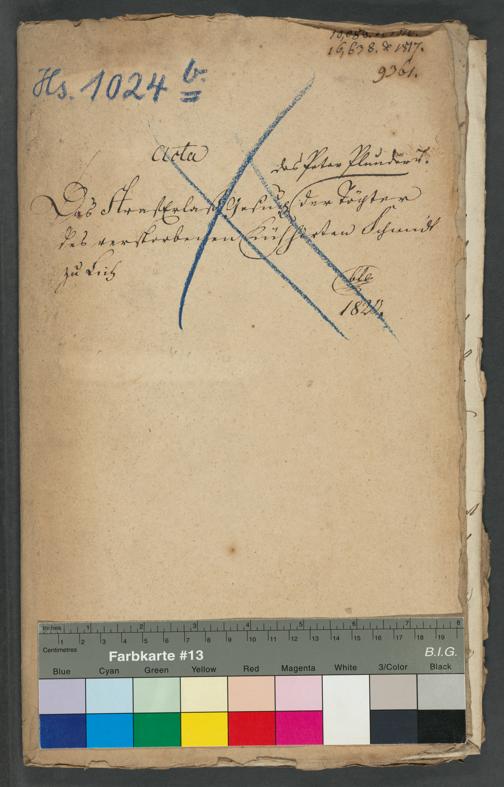 16,638. & 1817.
9361.
Hs. 1024 b.
Acta
des Peter Plunder
Das Straferlaß Gesuch der Töchter
des verstorbenen Kühhirten Schmidt
zu
182
Inches 1 2 3 4 5 6 7 8
Centimetres 1 2 3 4 5 6 7 8 9 10 11 12 13 14 15 16 17 18 19
Farbkarte #13 B.I.G.
Blue Cyan Green Yellow Red Magenta White 3/Color Black